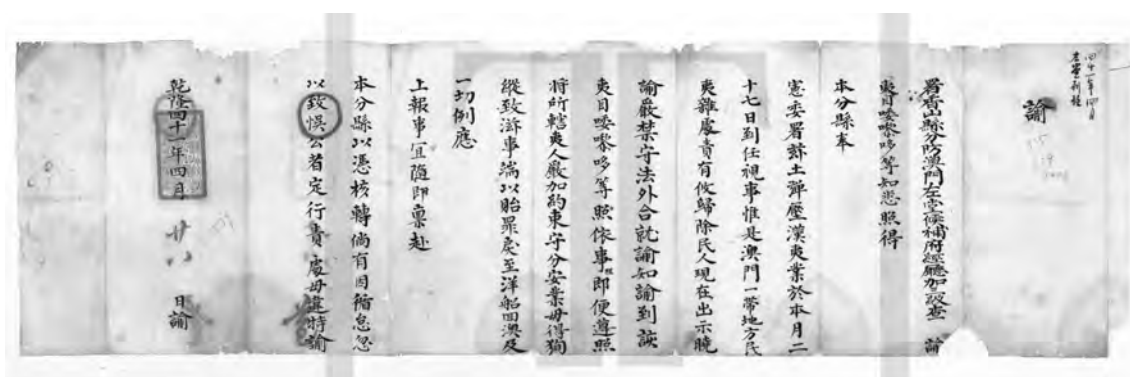 諭
署香山縣分防澳門左堂候補府經廳加一級查 諭
夷目唩嚟哆等知悉照得
本分縣奉
憲委署斯土彈壓漢夷業於本月二
十七日到任視事惟是澳門一帶地方民
夷雜處責有攸歸除民人現在出示曉
諭嚴禁守法外合就諭知諭到該
夷目唩嚟哆等照依事理即便遵照
將所轄夷人嚴加約束守分安業毋得狥
縱致滋事端以貽罪戾至洋船回澳及
一切例應
上報事宜隨即稟赴
本分縣以憑核轉倘有因循怠忽
以致悞公者定行責處毋違特諭
乾隆四十一年四月 廿八 日諭